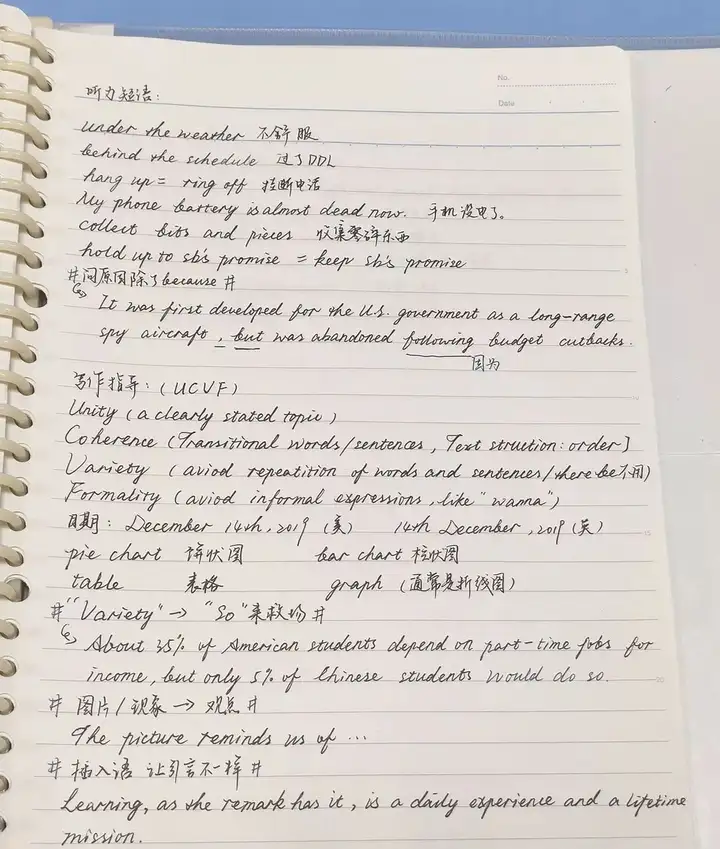 No.
Date
听力短语:
under the weather 不舒服
behind the schedule 过了DDL
hang up = ring off 挂断电话
My phone battery is almost dead now. 手机没电了。
collect bits and pieces 收集零碎东西
hold up to sb's promise = keep sb's promise
#问原因除了because#
It was first developed for the U.S. government as a long-range
spy aircraft, but was abandoned following budget cutbacks.
因为
写作指导: (UCVF)
Unity (a clearly stated topic)
Coherence (Transitional words/sentences, Text struction: order]
Variety (aviod repeatition of words and sentences/there be不用)
Formality (aviod informal expressions, like "wanna")
日期: December 14th, 2019 (美) 14th December, 2019 (英)
pie chart 饼状图 bar chart 柱状图
table 表格 graph (通常是折线图)
#"Variety" → "So"来救场#
About 35% of American students depend on part-time jobs for
income, but only 5% of Chinese students would do so.
# 图片/现象 → 观点 #
The picture reminds us of ...
# 插入语 让引言不一样 #
Learning, as the remark has it, is a daily experience and a lifetime
mission.